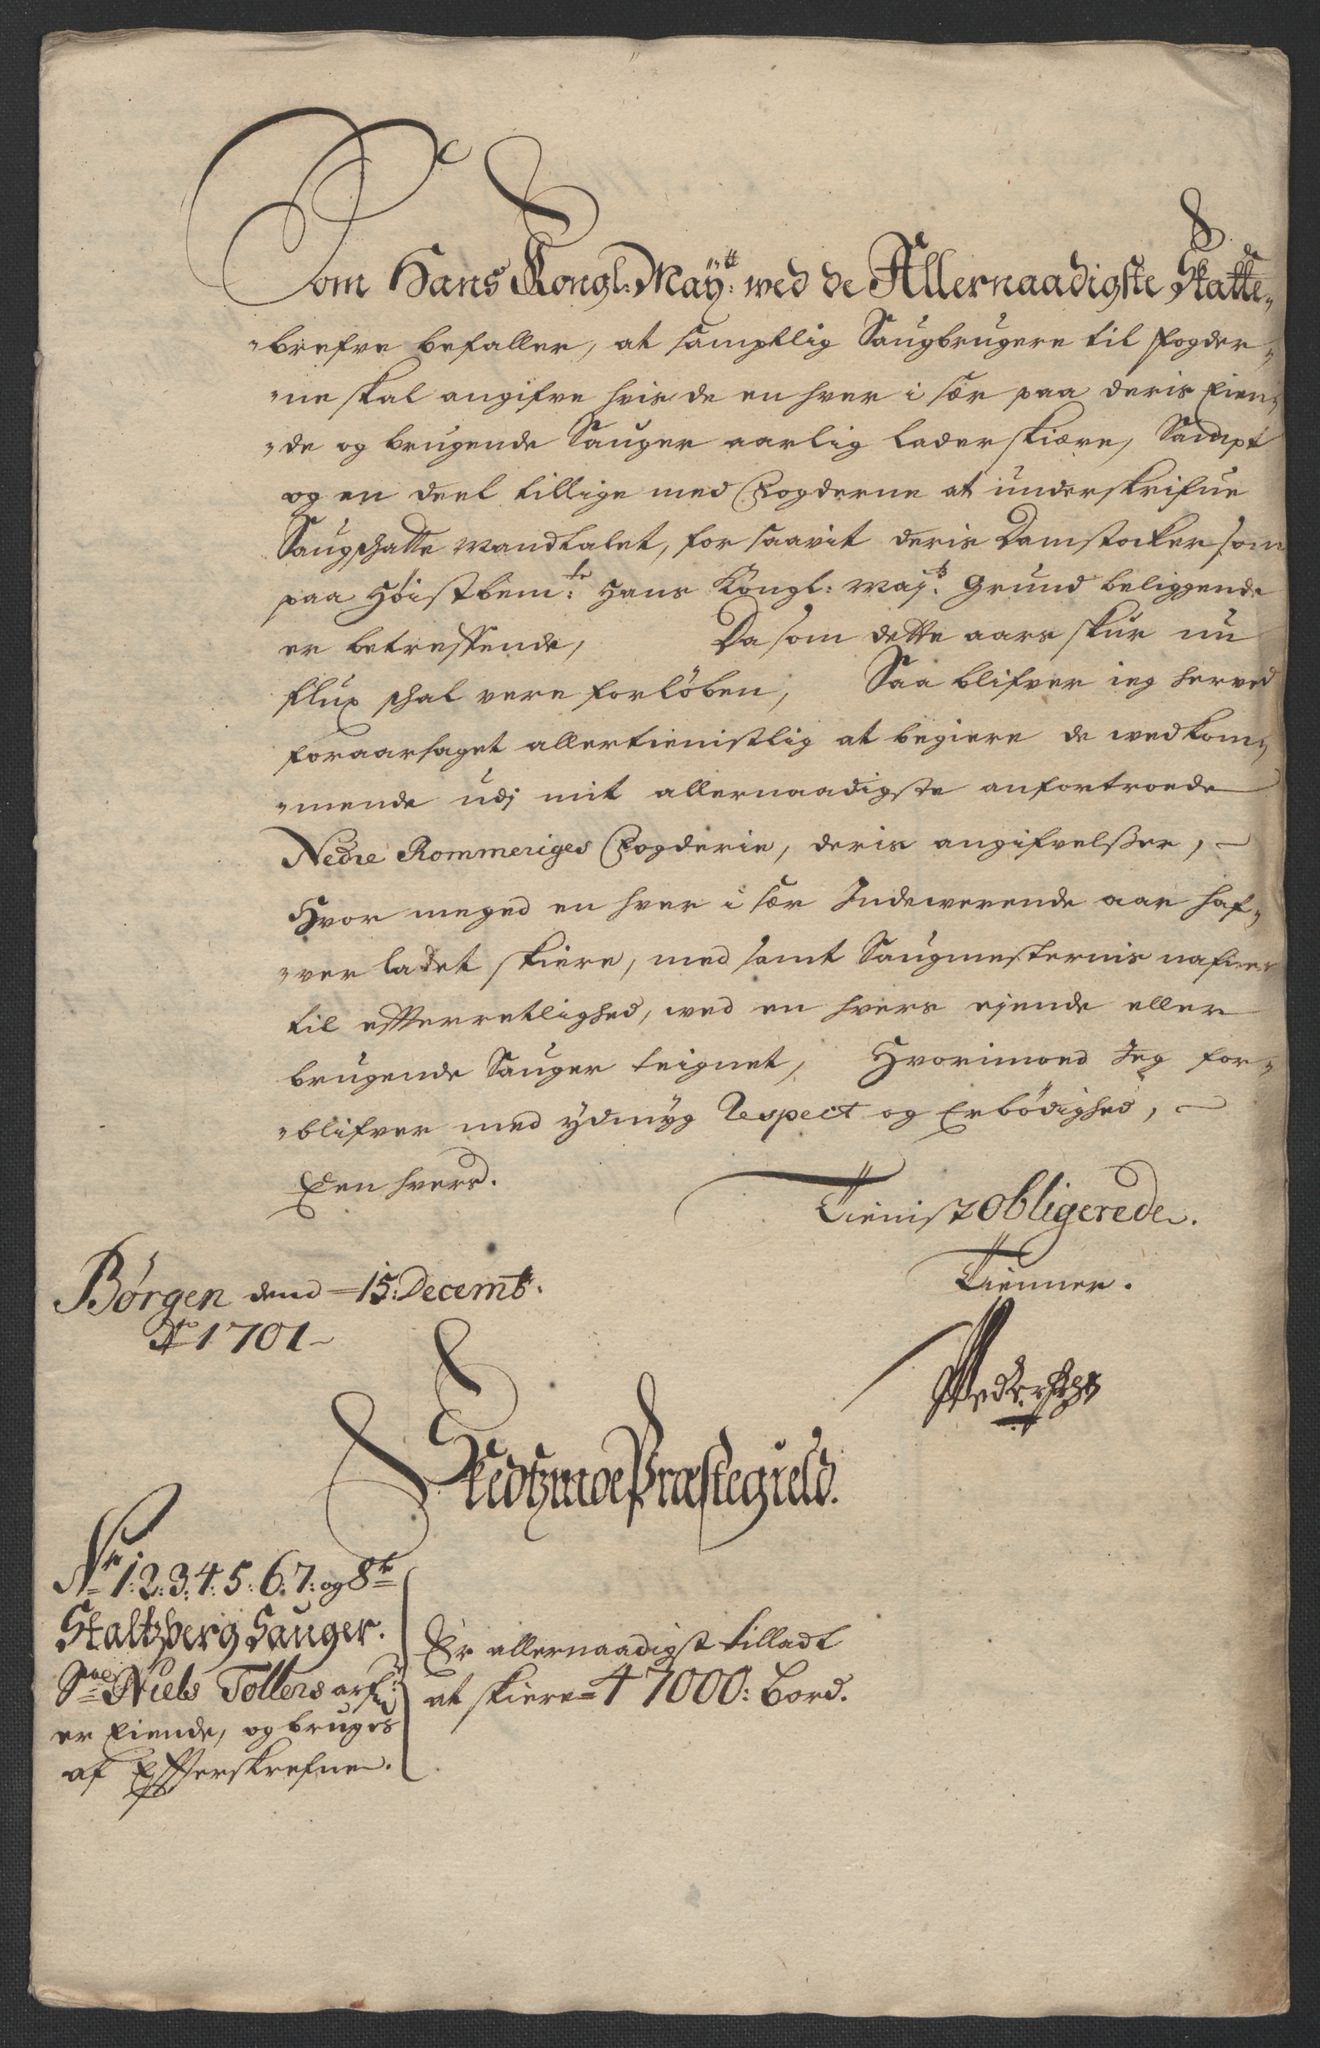 Som Hans Kongl: May:tt wed de Allernaadigste Skatte-
brefve befaller, at samptlig Saugbrugere til fogder-
ne skal angifve hvis de en hver i sær paa deris Eien-
de og brugende Sauger aarlig lader skiære, Sampt
og en deel tillige med Fogderne at underskrifue
Saugschatte Mandtalet, forsaavit deris Damstocker som
paa Høistbem:te Hans Kongl: May:tt Grund beliggende
er betreffende, Da som dette aars skur nu
flux schal vere forløben, Saa blifver ieg herved
foraarsaget allertienistlig at begiere de wedkom-
mende udj mit allernaadigste anfortroede
Nedre Rommeriges Fogderie, deris angifvelsser,
Hvor meged en hver i sær Indewerende aar haf-
ver ladet skiere, med samt Saugmesternis nafne
til efferretlighed, wed en hvers ejende eller
brugende Sauger teignet, Hvorimod Jeg for-
blifver med ydmyg Respect og Erbödighed,
Een hvers.
Tienistobligerede.
Tienner.
Børgen dend 15: Decemb:
Ao 1701
Skedtzmoe Præstegield.
No 1: 2: 3: 4: 5: 6: 7: og 8de
Staltzberg Sauger.
Sal: Niels Tollers arf:
er Eiende, og bruges
af Effterskrefne.
Er allernaadigst tilladt
at skiere 47000: Bord.